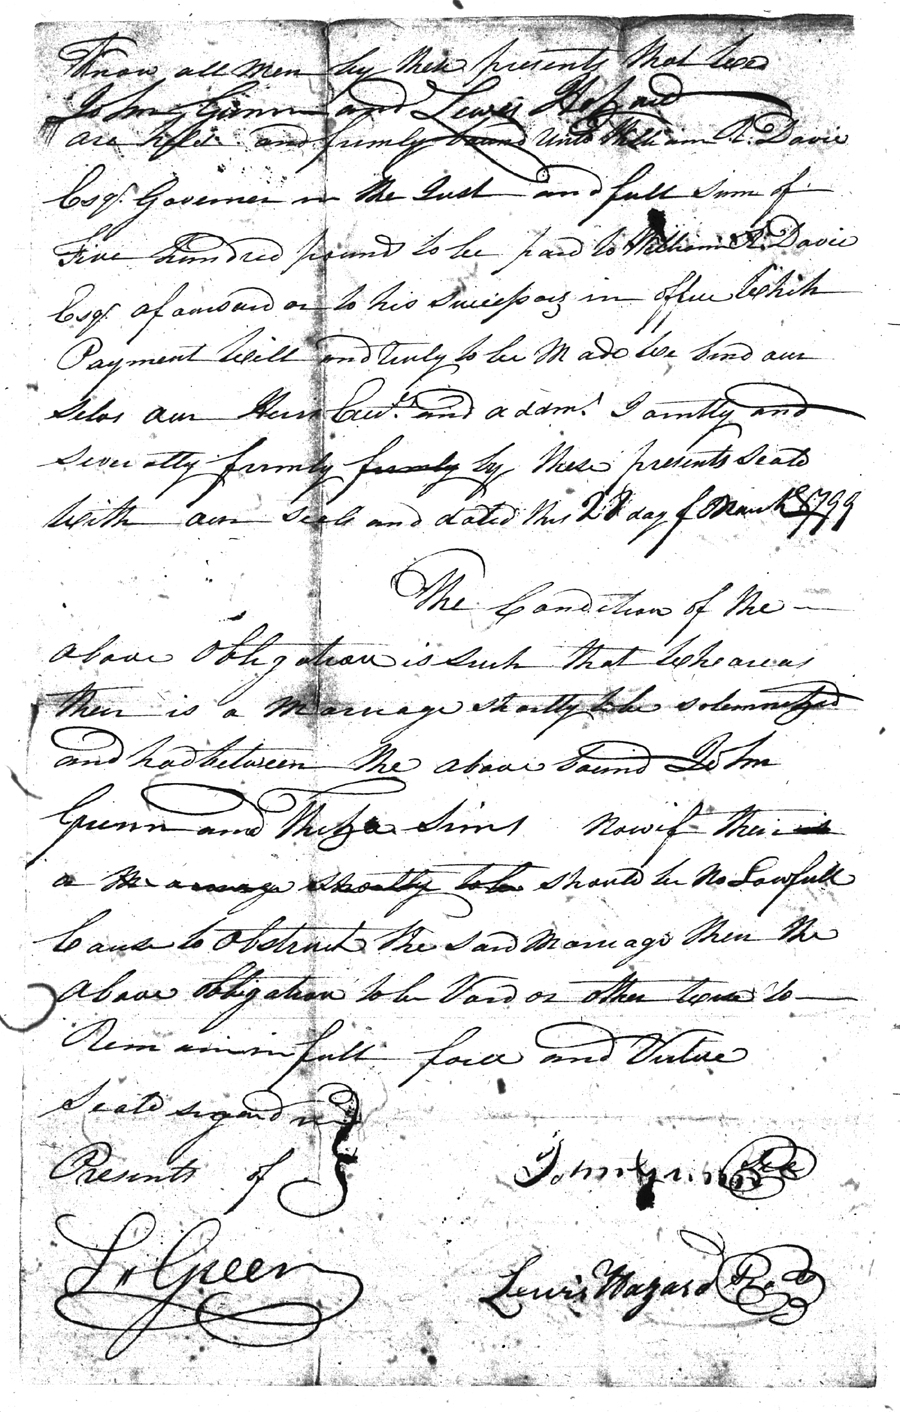 Know all men by these presents that wee
John Gunn and Lewis Hazard
are held and firmly bound unto William R. Davie
Esqr. Governer in the Just and full sum of
five hundred pounds to be paid to William R. Davie
Esqr. afoursard or to his sucessors in office Which
Payment Will and truly to be Made We bind our
selvs our Heirs Exes. and addms. Jointly and
severally firmly firmly by these presents seald
With our seals and dated this 28 day of March 1799
The Condition of the
above obligation is such that Wheareas
their is a Marriage shortly to be solemnized
and had between the above bound John
Gunn and Sims now if their is
a Marriage shortly to be should be No Lawfull
Cause to obstruct the said Marriage then the
above obligation to be Void or other wise to
Remain in full force and Virtue
Seald signd in
Presents of
John Gunn
Lewis Hazard
Green